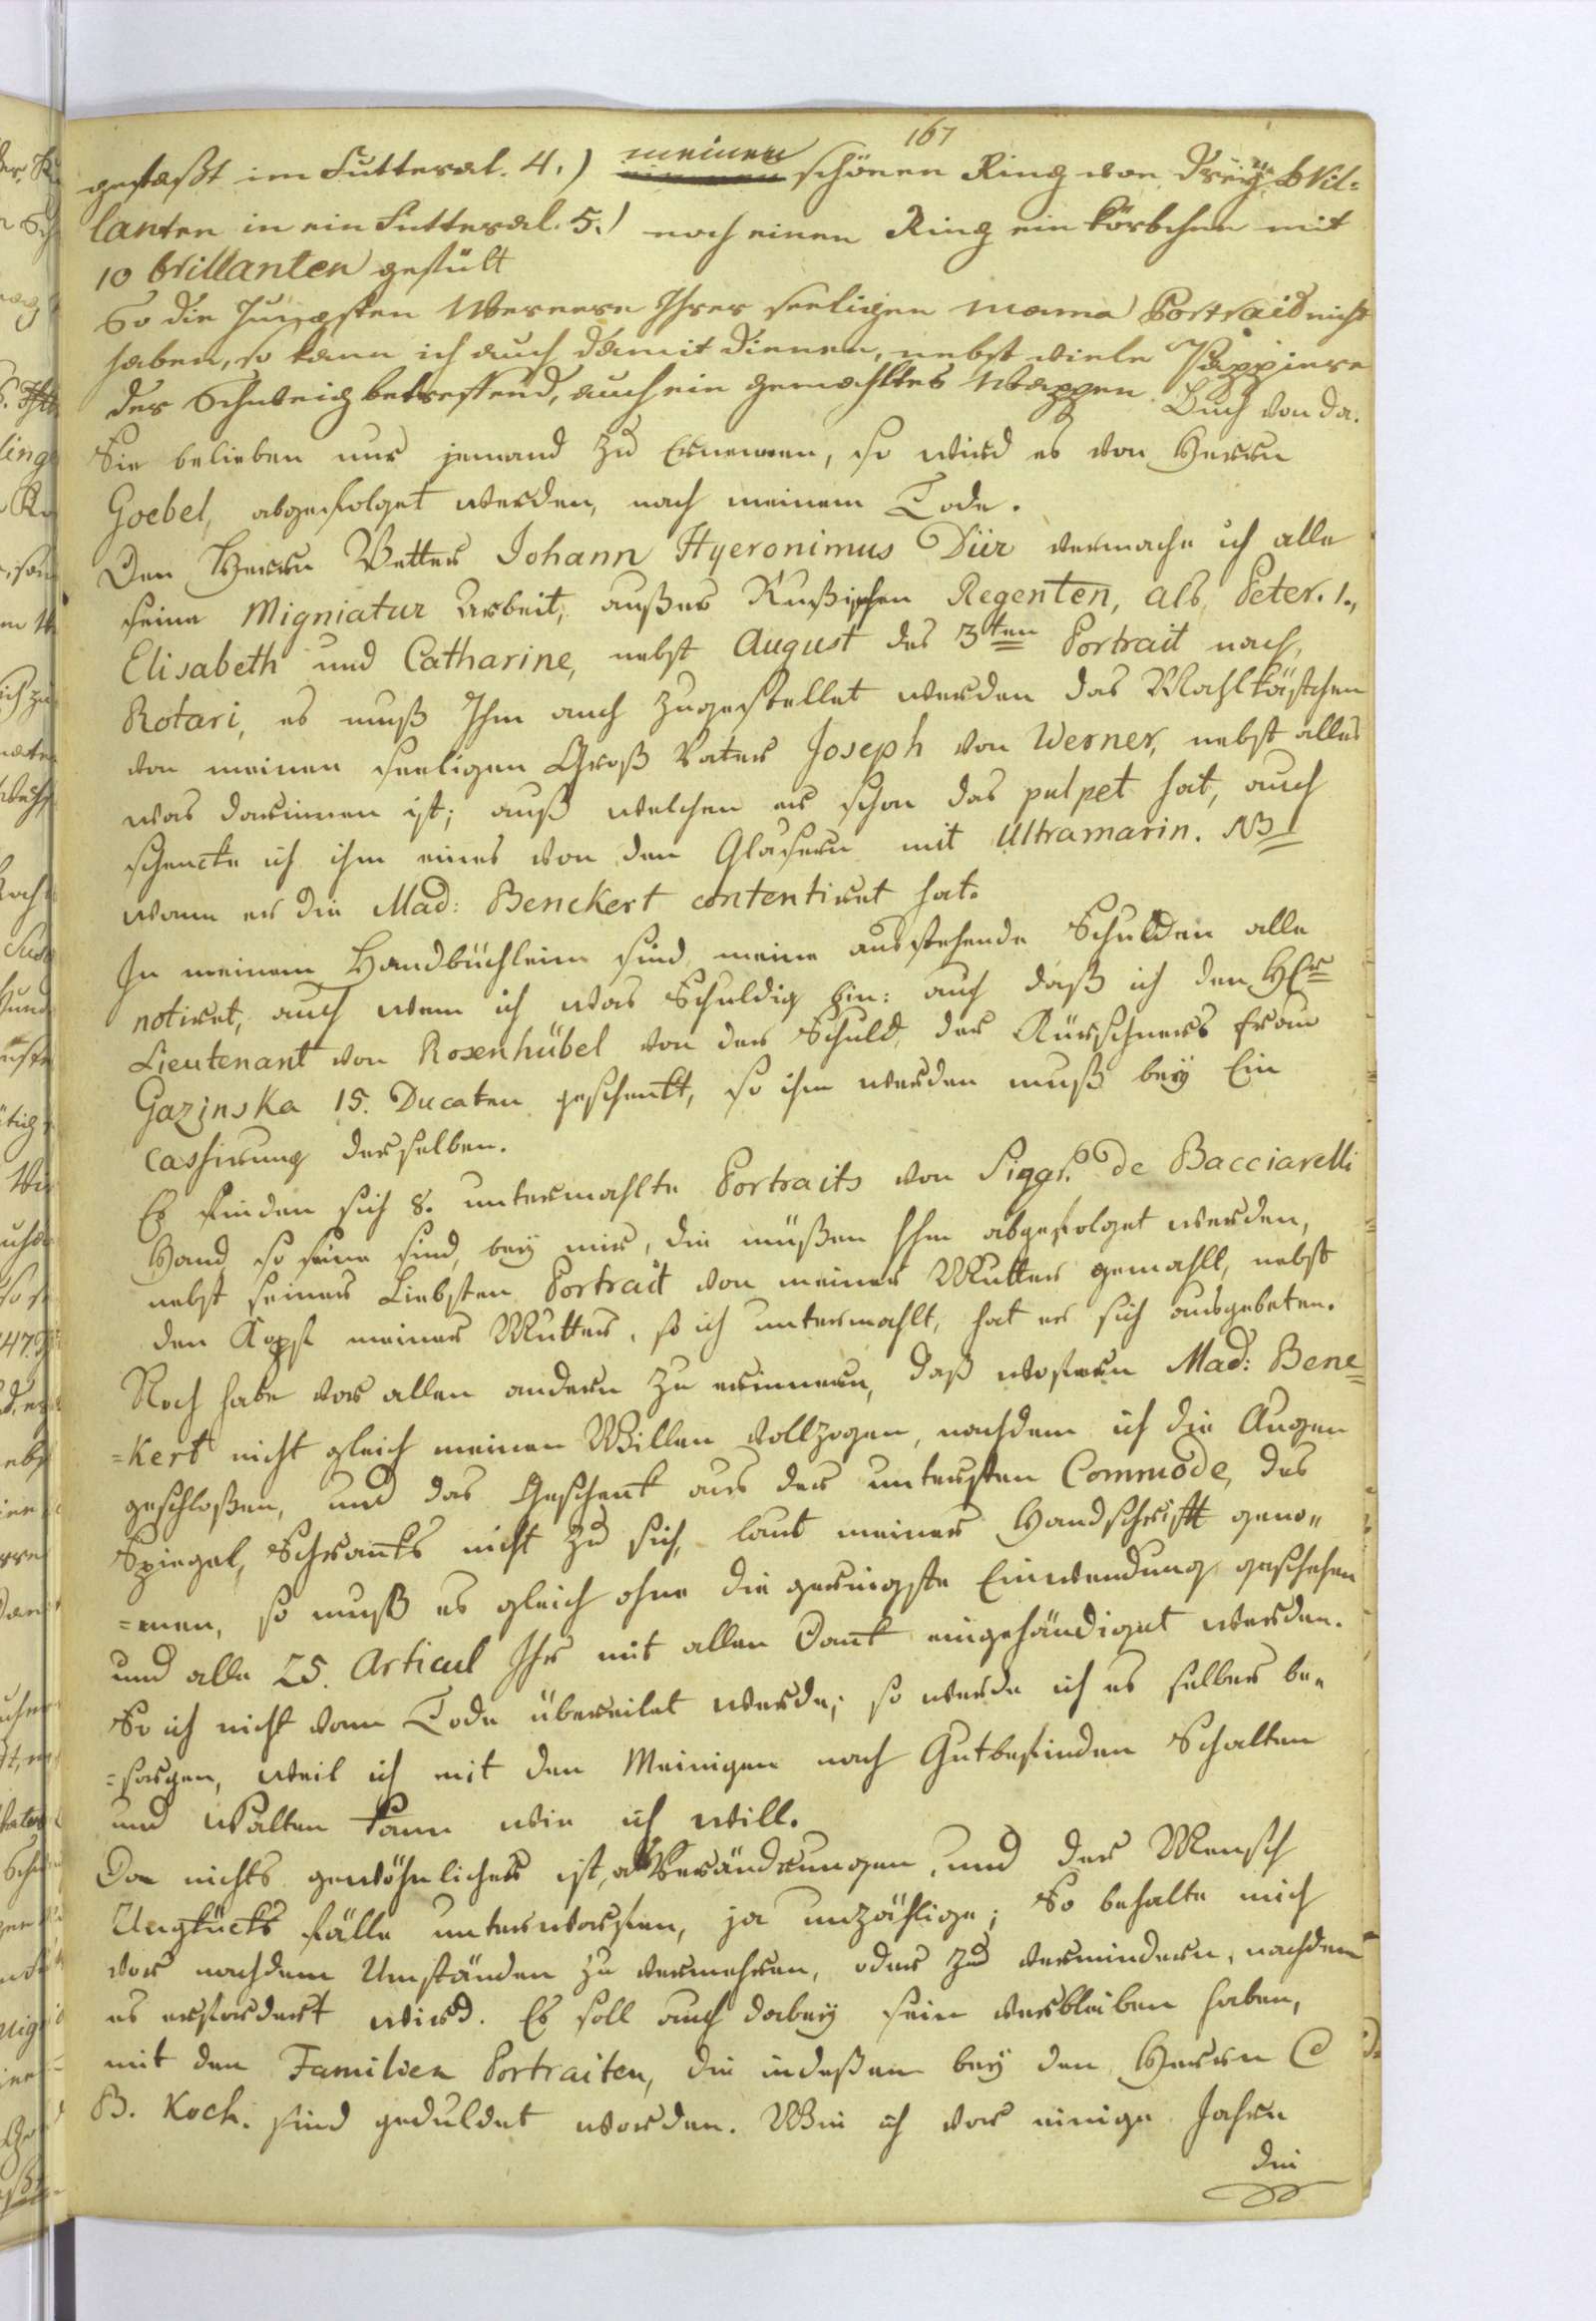 167
gefaßt im Futteral. 4.) meinen schönen Ring von dreÿ bril-
lanten in ein Futteral. 5.) noch einen Ring ein körbchen mit
10 brillanten gefült
So die Jungsten Wernern Ihrer seeligen mama Portrait nicht
haben, so kann ich auch damit dienen, nebst viele Pappiere
der Schweig betreffend, auch ein gemahltes Wappen Buch von da.
Sie belieben nur jemand zu Ernennen, so wird es von Herrn
Goebel, abgefolget werden, nach meinem Tode.
Den Herrn Vetter Johann Hyeronimus Dür vermache ich alle
seine Migniatur Arbeit, außer Rußischen Regenten, als Peter. 1.,
Elisabeth und Catharine, nebst August des 3ten Portrait nach,
Rotari, es muß Ihm auch zugestellet werden das Mahlkästchen
von meinen seeligen Groß Vater Joseph von Werner, nebst alles
was darinnen ist; auß welchen er schon das pulpet hat, auch
schencke ich ihm eines von den Gläsern mit Ultramarin. NB
wann er die Mad: Benckert contentiret hat.
In meinem Handbüchlein sind meine ausstehende Schulden alle
notiret, auch wem ich was Schuldig bin: auch daß ich den Hr
Lieutenant von Rosenhübel von der Schuld, der Kürschners Frau
Gazinska 15. Ducaten geschenkt, so ihm werden muß beÿ Ein
cassirung derselben.
Es finden sich 8. untermahlte Portraits von Siggr. de Bacciarelli
Hand so seine sind, beÿ mir, die müßen Ihm abgefolget werden,
nebst seiner Liebsten Portrait von meiner Mutter gemahlt, nebst
den Kopf meiner Mutter, so ich untermahlt, hat er sich ausgebeten.
Noch habe vor allen andern zu erinnern, daß wofern Mad: Bene=
=kert nicht gleich meinen Willen vollzogen, nachdem ich die Augen
geschloßen, und das Geschenk aus der untersten Commode, des
Spiegel, Schranks nicht zu sich, laut meiner Handschrifft geno„
=men, so muß es gleich ohne die geringste Einwendung geschehen
und alle 25. Articul Ihr mit allen Dank eingehändiget werden.
So ich nicht vom Tode übereilet werde; so werde ich es selber be„
=sorgen, weil ich mit den Meinigen nach Gutbefinden Schalten
und Walten kann wie ich will.
Da nichts gewöhnlicher ist, als Verändrungen, und der Mensch
Unglücks fälle unterworfen, ja unzählige; So behalte mich
vor nachdem Umständen zu vermehren, oder zu vermindern, nachdem
es erfordert wird. Es soll auch dabeÿ sein verbleiben haben,
mit den Familien Portraiten, die indeßen beÿ den Herrn C
B. Koch. sind geduldet worden. Wie ich vor einige Jahren
die